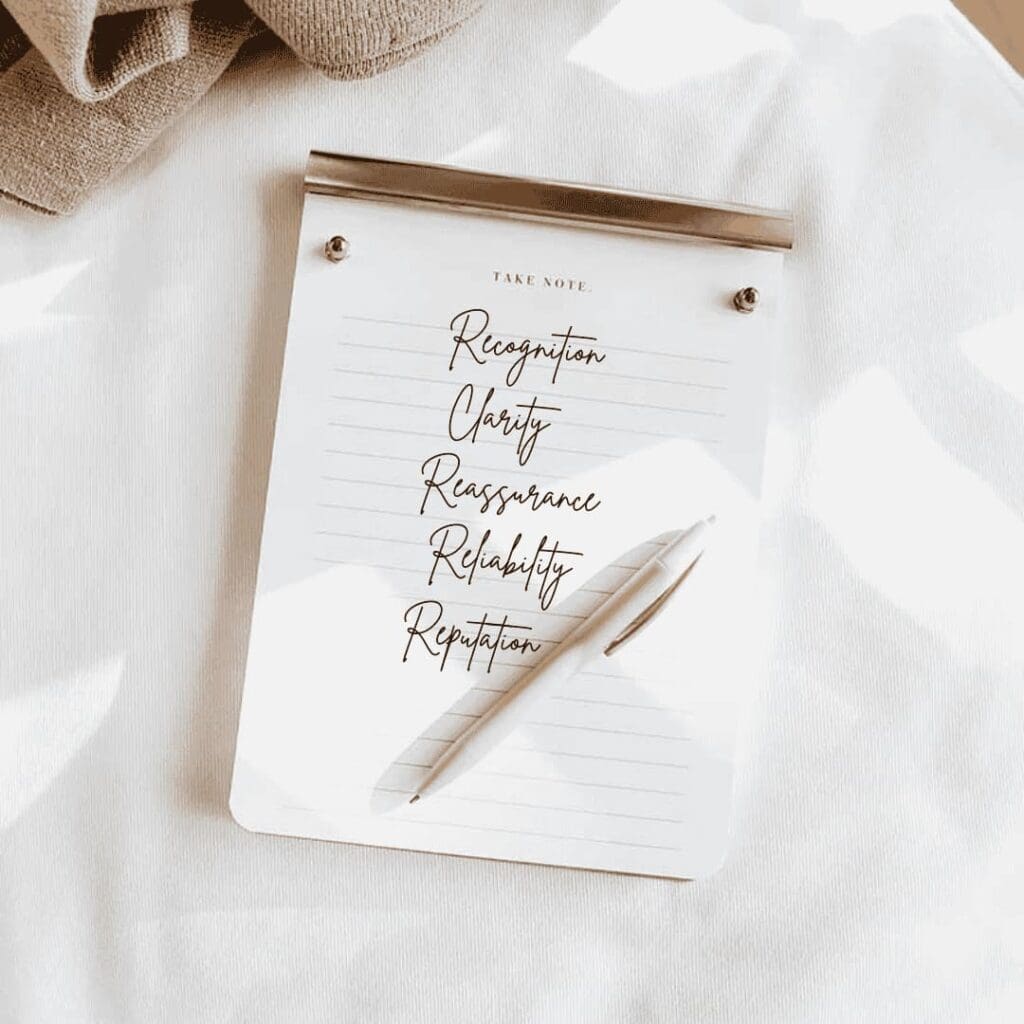 TAKE NOTE.
Recognition
Clarity
Reassurance
Reliability
Reputation